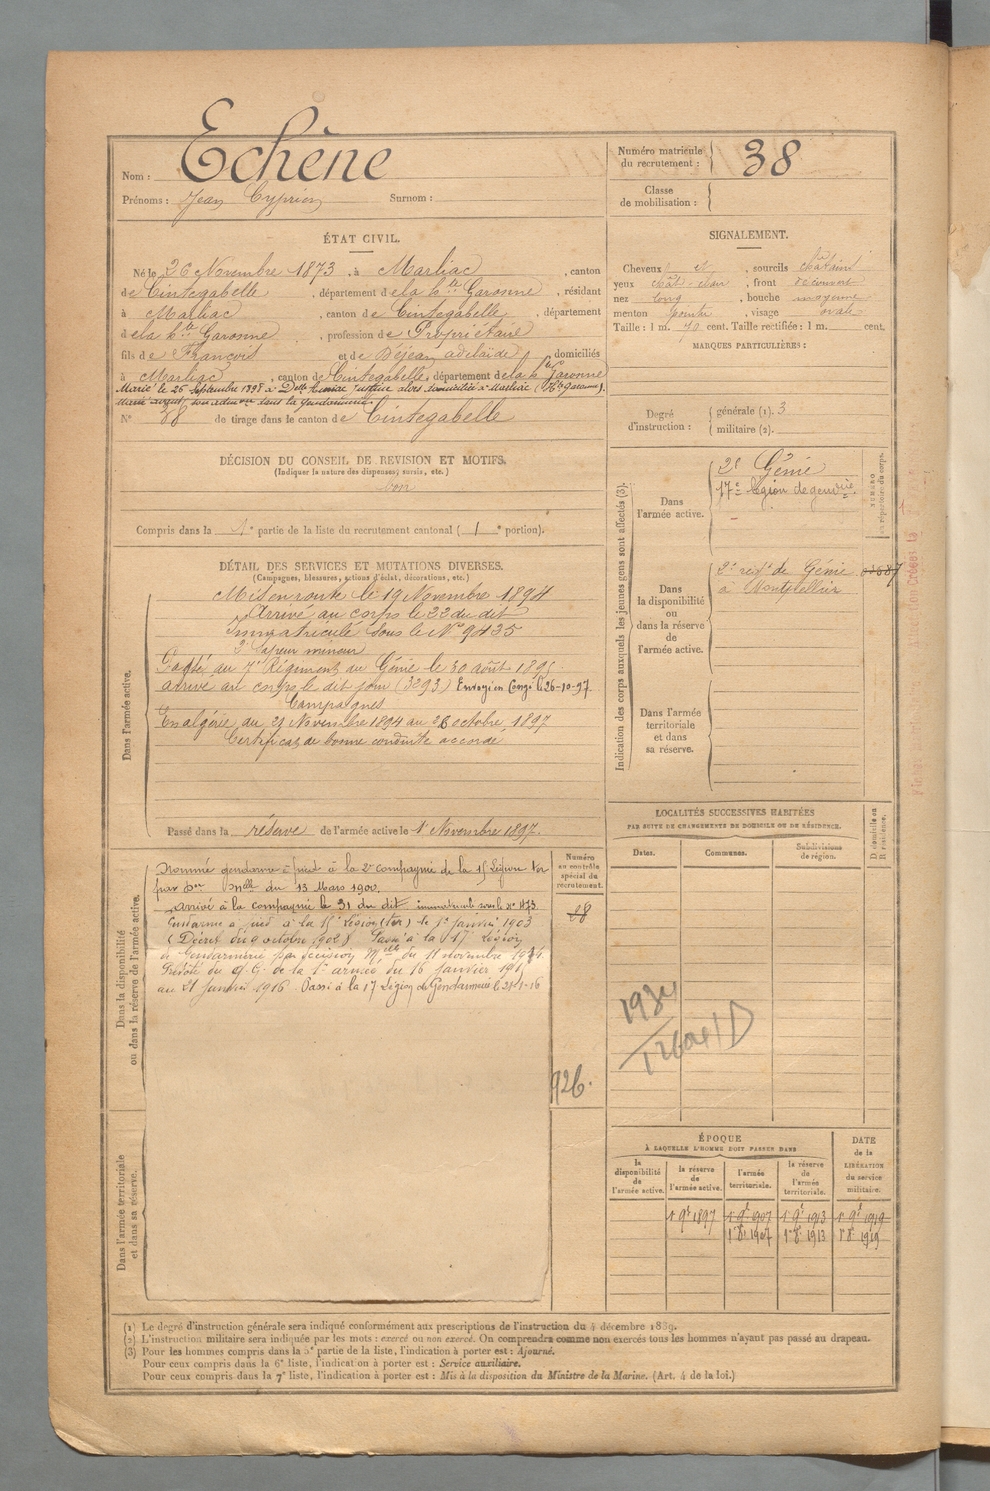 Nom : Echène
Prénoms : Jean Cyprien Surnom :
Numéro matricule du recrutement : 38
Classe de mobilisation :
ÉTAT CIVIL.
Né le 26 Novembre 1873, à Marliac, canton
de Cintegabelle, département de la hte Garonne, résidant
à Marliac, canton de Cintegabelle, département
de la hte Garonne, profession de Propriétaire
fils de François et de Dejean adelaïde, domiciliés
à Marliac, canton de Cintegabelle, département de la hte Garonne
Marié le 26 Septembre 1898 à Delle alors domiciliée à Marliac (Hte garonne).
Marié avant son adm dans la gendarmerie.
N° 38 de tirage dans le canton de Cintegabelle
SIGNALEMENT.
Cheveux et sourcils châtains
yeux chât. clair, front découvert
nez long, bouche moyenne
menton pointu, visage ovale
Taille : 1 m. 70 cent. Taille rectifiée : 1 m. cent.
MARQUES PARTICULIÈRES :
Degré d'instruction : générale (1). 3
militaire (2).
DÉCISION DU CONSEIL DE REVISION ET MOTIFS.
(Indiquer la nature des dispenses, sursis, etc.)
bon
Compris dans la 1e partie de la liste du recrutement cantonal ( 1 e portion).
DÉTAIL DES SERVICES ET MUTATIONS DIVERSES.
(Campagnes, blessures, actions d'éclat, décorations, etc.)
Dans l'armée active.
Mis en route le 19 Novembre 1894
Arrivé au corps le 22 du dit
Immatriculé sous le N° 9435
2e Sapeur mineur
Passé au 7e Régiment du Génie le 30 août 1895.
arrivé au corps le dit jour (3293) Envoyé en Congé le 26-10-97.
Campagnes
En algérie du 21 Novembre 1894 au 26 octobre 1897
Certificat de bonne conduite accordé
Passé dans la réserve de l'armée active le 1er Novembre 1897.
Indication des corps auxquels les jeunes gens sont affectés (3).
Dans l'armée active.
2e Génie
17e légion de gendrie.
NUMÉRO au répertoire du corps.
Dans la disponibilité ou dans la réserve de l'armée active.
2e regt de Génie
à Montpellier
Dans l'armée territoriale et dans sa réserve.
LOCALITÉS SUCCESSIVES HABITÉES
PAR SUITE DE CHANGEMENTS DE DOMICILE OU DE RÉSIDENCE.
Dates. Communes. Subdivisions de région. D domicile ou R résidence.
Dans la disponibilité ou dans la réserve de l'armée active.
Numéro au contrôle spécial du recrutement.
Nommé gendarme à pied à la 2e compagnie de la 15 Légion ter
par Don Mnelle du 13 Mars 1900.
Arrivé à la compagnie le 31 du dit immatriculé sous le n° 473
28
Gendarme à pied à la 15e Légion (ter) le 1er janvier 1903
(Décret du 9 octobre 1902) Passé à la 17e Légion
de Gendarmerie par décision Mlle du 11 novembre 1904
Prévôté du Q. G. de la 1e armée du 16 janvier 1915
au 21 janvier 1916 Passé à la 17 Légion de Gendarmerie le 21-1-16
926.
1934
Dans l'armée territoriale et dans sa réserve.
ÉPOQUE
À LAQUELLE L'HOMME DOIT PASSER DANS
DATE de la LIBÉRATION du service militaire.
la disponibilité de l'armée active. la réserve de l'armée active. l'armée territoriale. la réserve de l'armée territoriale.
1er 9e 1897 1er 9e 1907 1er 9e 1913 1er 9e 1919
1er 8e 1907 1er 8e 1913 1er 8e 1919
(1) Le degré d'instruction générale sera indiqué conformément aux prescriptions de l'instruction du 4 décembre 1889.
(2) L'instruction militaire sera indiquée par les mots : exercé ou non exercé. On comprendra comme non exercés tous les hommes n'ayant pas passé au drapeau.
(3) Pour les hommes compris dans la 5e partie de la liste, l'indication à porter est : Ajourné.
Pour ceux compris dans la 6e liste, l'indication à porter est : Service auxiliaire.
Pour ceux compris dans la 7e liste, l'indication à porter est : Mis à la disposition du Ministre de la Marine. (Art. 4 de la loi.)